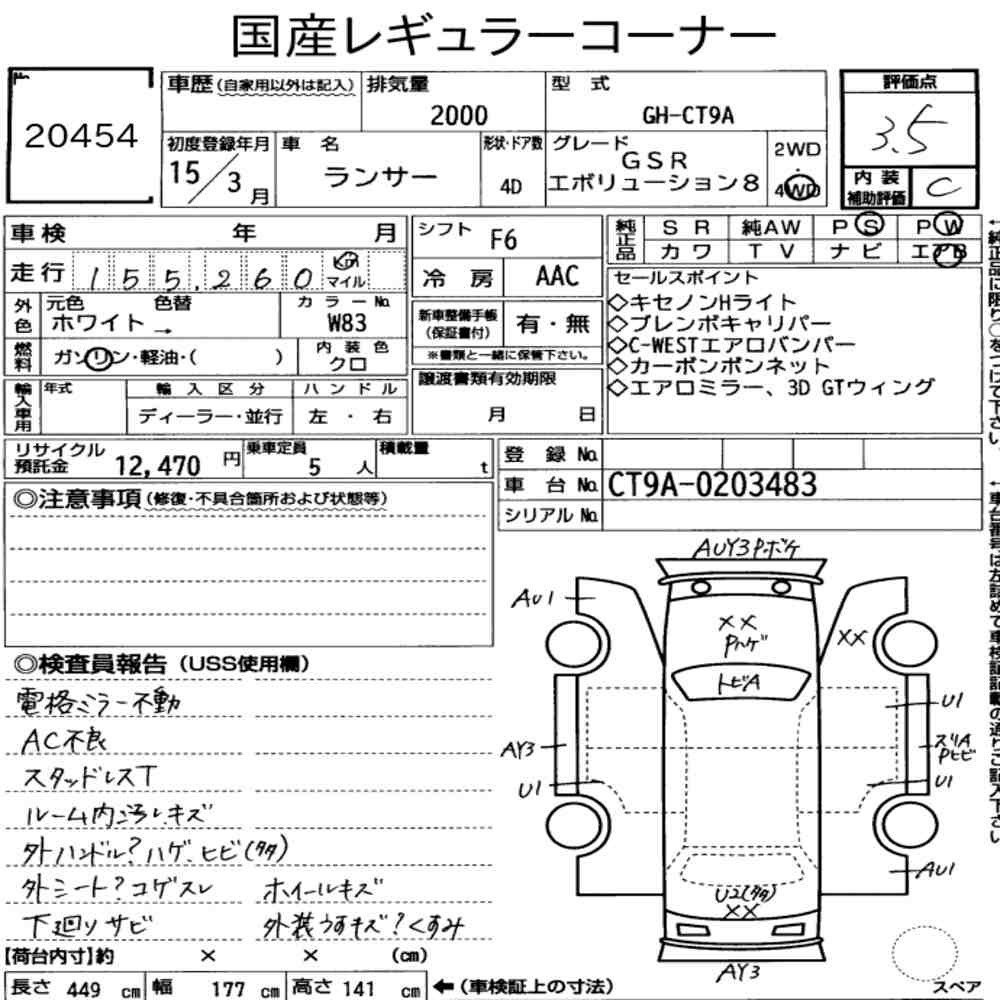 国産レギュラーコーナー
20454
車歴(自家用以外は記入) 排気量 2000 型 式 GH-CT9A 評価点 3.5
初度登録年月 15/3月 車 名 ランサー 形状・ドア数 4D グレード GSR エボリューション8 2WD・4WD
内装補助評価 C
車検 年 月 シフト F6 純正品 SR 純AW PS PW
カワ TV ナビ エアB
走行 155,260 マイル 冷 房 AAC
外色 元色 ホワイト → 色替 カラーNo. W83
新車整備手帳(保証書付) 有・無
※書類と一緒に保管下さい。
燃料 ガソリン・軽油・( ) 内装色 クロ
セールスポイント
◇キセノンHライト
◇ブレンボキャリパー
◇C-WESTエアロバンパー
◇カーボンボンネット
◇エアロミラー、3D GTウィング
輸入車用 年式 輸入区分 ディーラー・並行 ハンドル 左・右
譲渡書類有効期限 月 日
リサイクル預託金 12,470円 乗車定員 5人 積載量 t
登録No.
車台No. CT9A-0203483
シリアルNo.
◎注意事項(修復・不具合箇所および状態等)
◎検査員報告(USS使用欄)
電格ミラー不動
AC不良
スタッドレスT
ルーム内汚レキズ
外ハンドル?ハゲ、ヒビ(多)
外シート?コゲスレ ホイールキズ
下廻リサビ 外装うすキズ?くすみ
AUY3Pボケ
AU1
××
Pハゲ
××
トビA
U1
AY3
スリA
Pヒビ
U1
U1
AU1
U2(多)
××
AY3
スペア
【荷台内寸】約 × × (cm)
長さ 449 cm 幅 177 cm 高さ 141 cm ←(車検証上の寸法)
↑純正品に限り○をつけて下さい。
↑車台番号は左詰めで車検証記載の通りご記入下さい